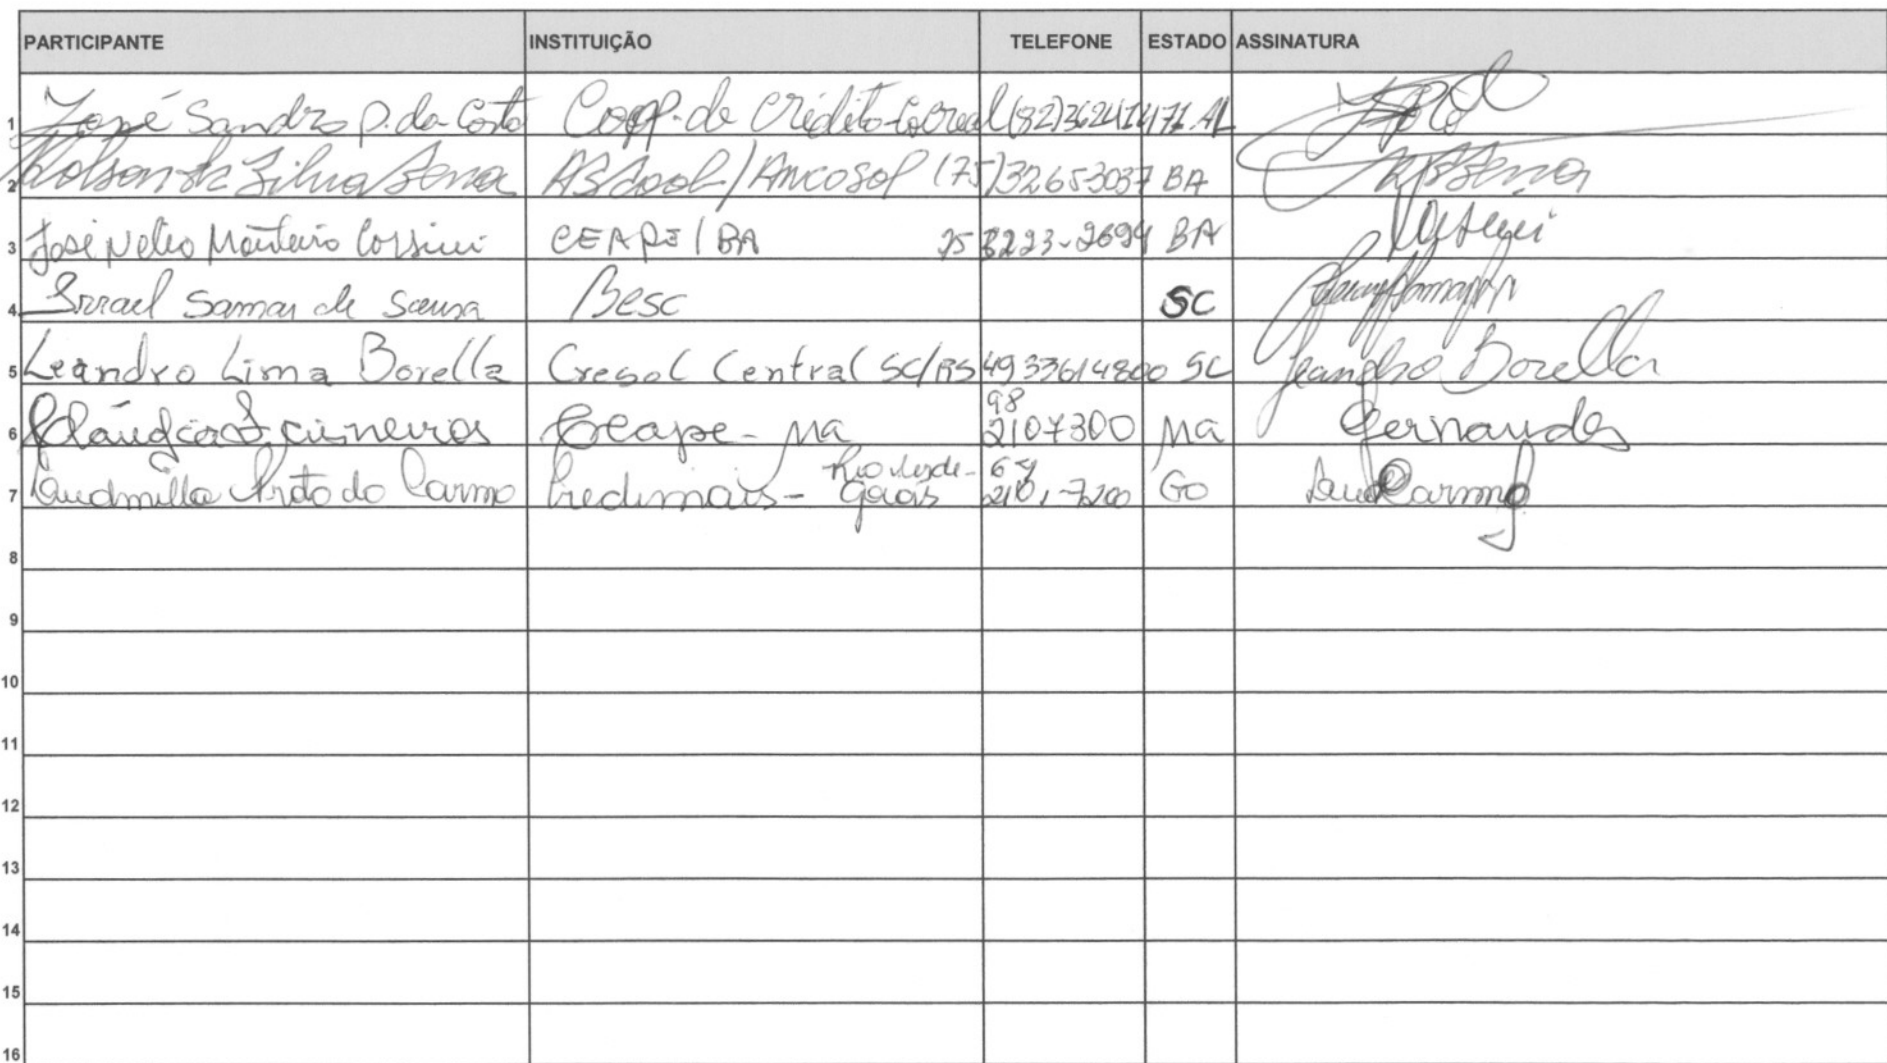 PARTICIPANTE INSTITUIÇÃO TELEFONE ESTADO ASSINATURA
1 José Sandro P. da Costa Coop. de Crédito AL
2 Silva Sena Ascoob / Ancosol (75) 32653037 BA
3 José Nelio Monteiro Corsini CEAPE / BA 75 3223-2694 BA
4 Israel Samar de Sousa Besc SC
5 Leandro Lima Borella Cresol Central SC/RS 49 33614800 SC Leandro Borella
98
6 Cláudia Ceape - Ma 2107300 Ma Fernandes
Rio Verde - 64
7 Ludmilla do Carmo Credimais - Goiás 2101-7200 GO
8
9
10
11
12
13
14
15
16